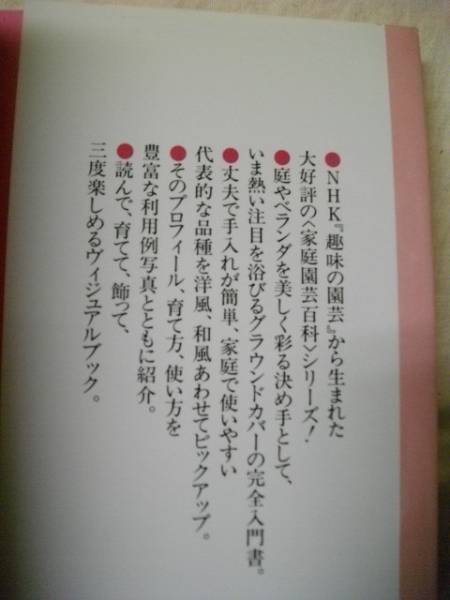 ●NHK『趣味の園芸』から生まれた
大好評の〈家庭園芸百科〉シリーズ!
●庭やベランダを美しく彩る決め手として、
いま熱い注目を浴びるグラウンドカバーの完全入門書。
●丈夫で手入れが簡単、家庭で使いやすい
代表的な品種を洋風、和風あわせてピックアップ。
●そのプロフィール、育て方、使い方を
豊富な利用例写真とともに紹介。
●読んで、育てて、飾って、
三度楽しめるヴィジュアルブック。